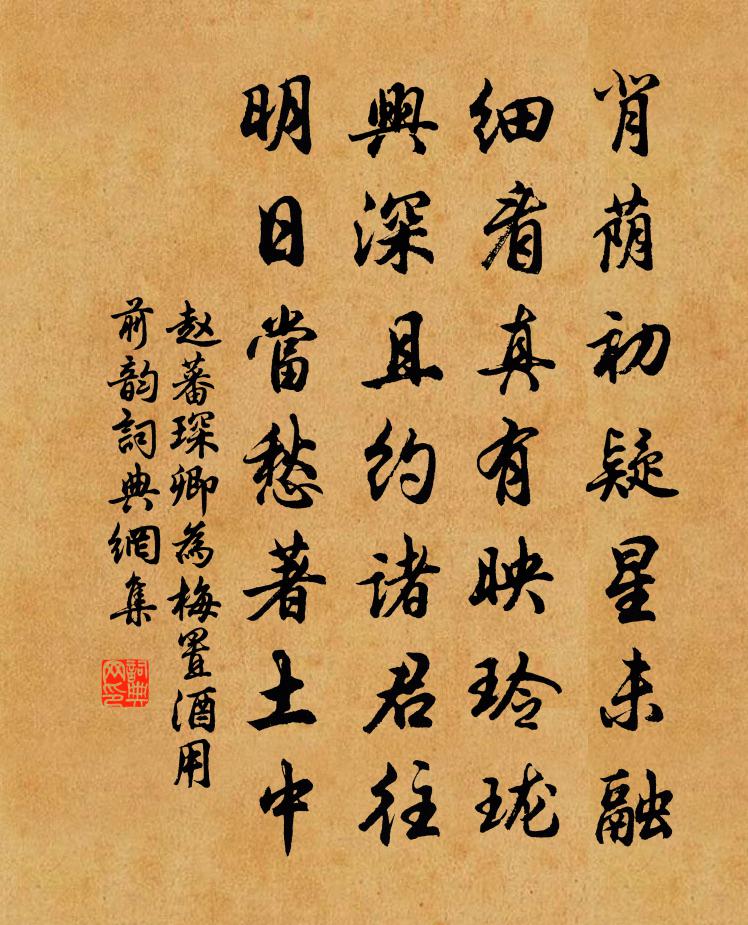 肖荫初疑星未融
细看真有映玲珑
興深且约诸君往
明日當愁著土中
赵蕃琛卿為梅置酒用
前韵詞典網集
詞典网印